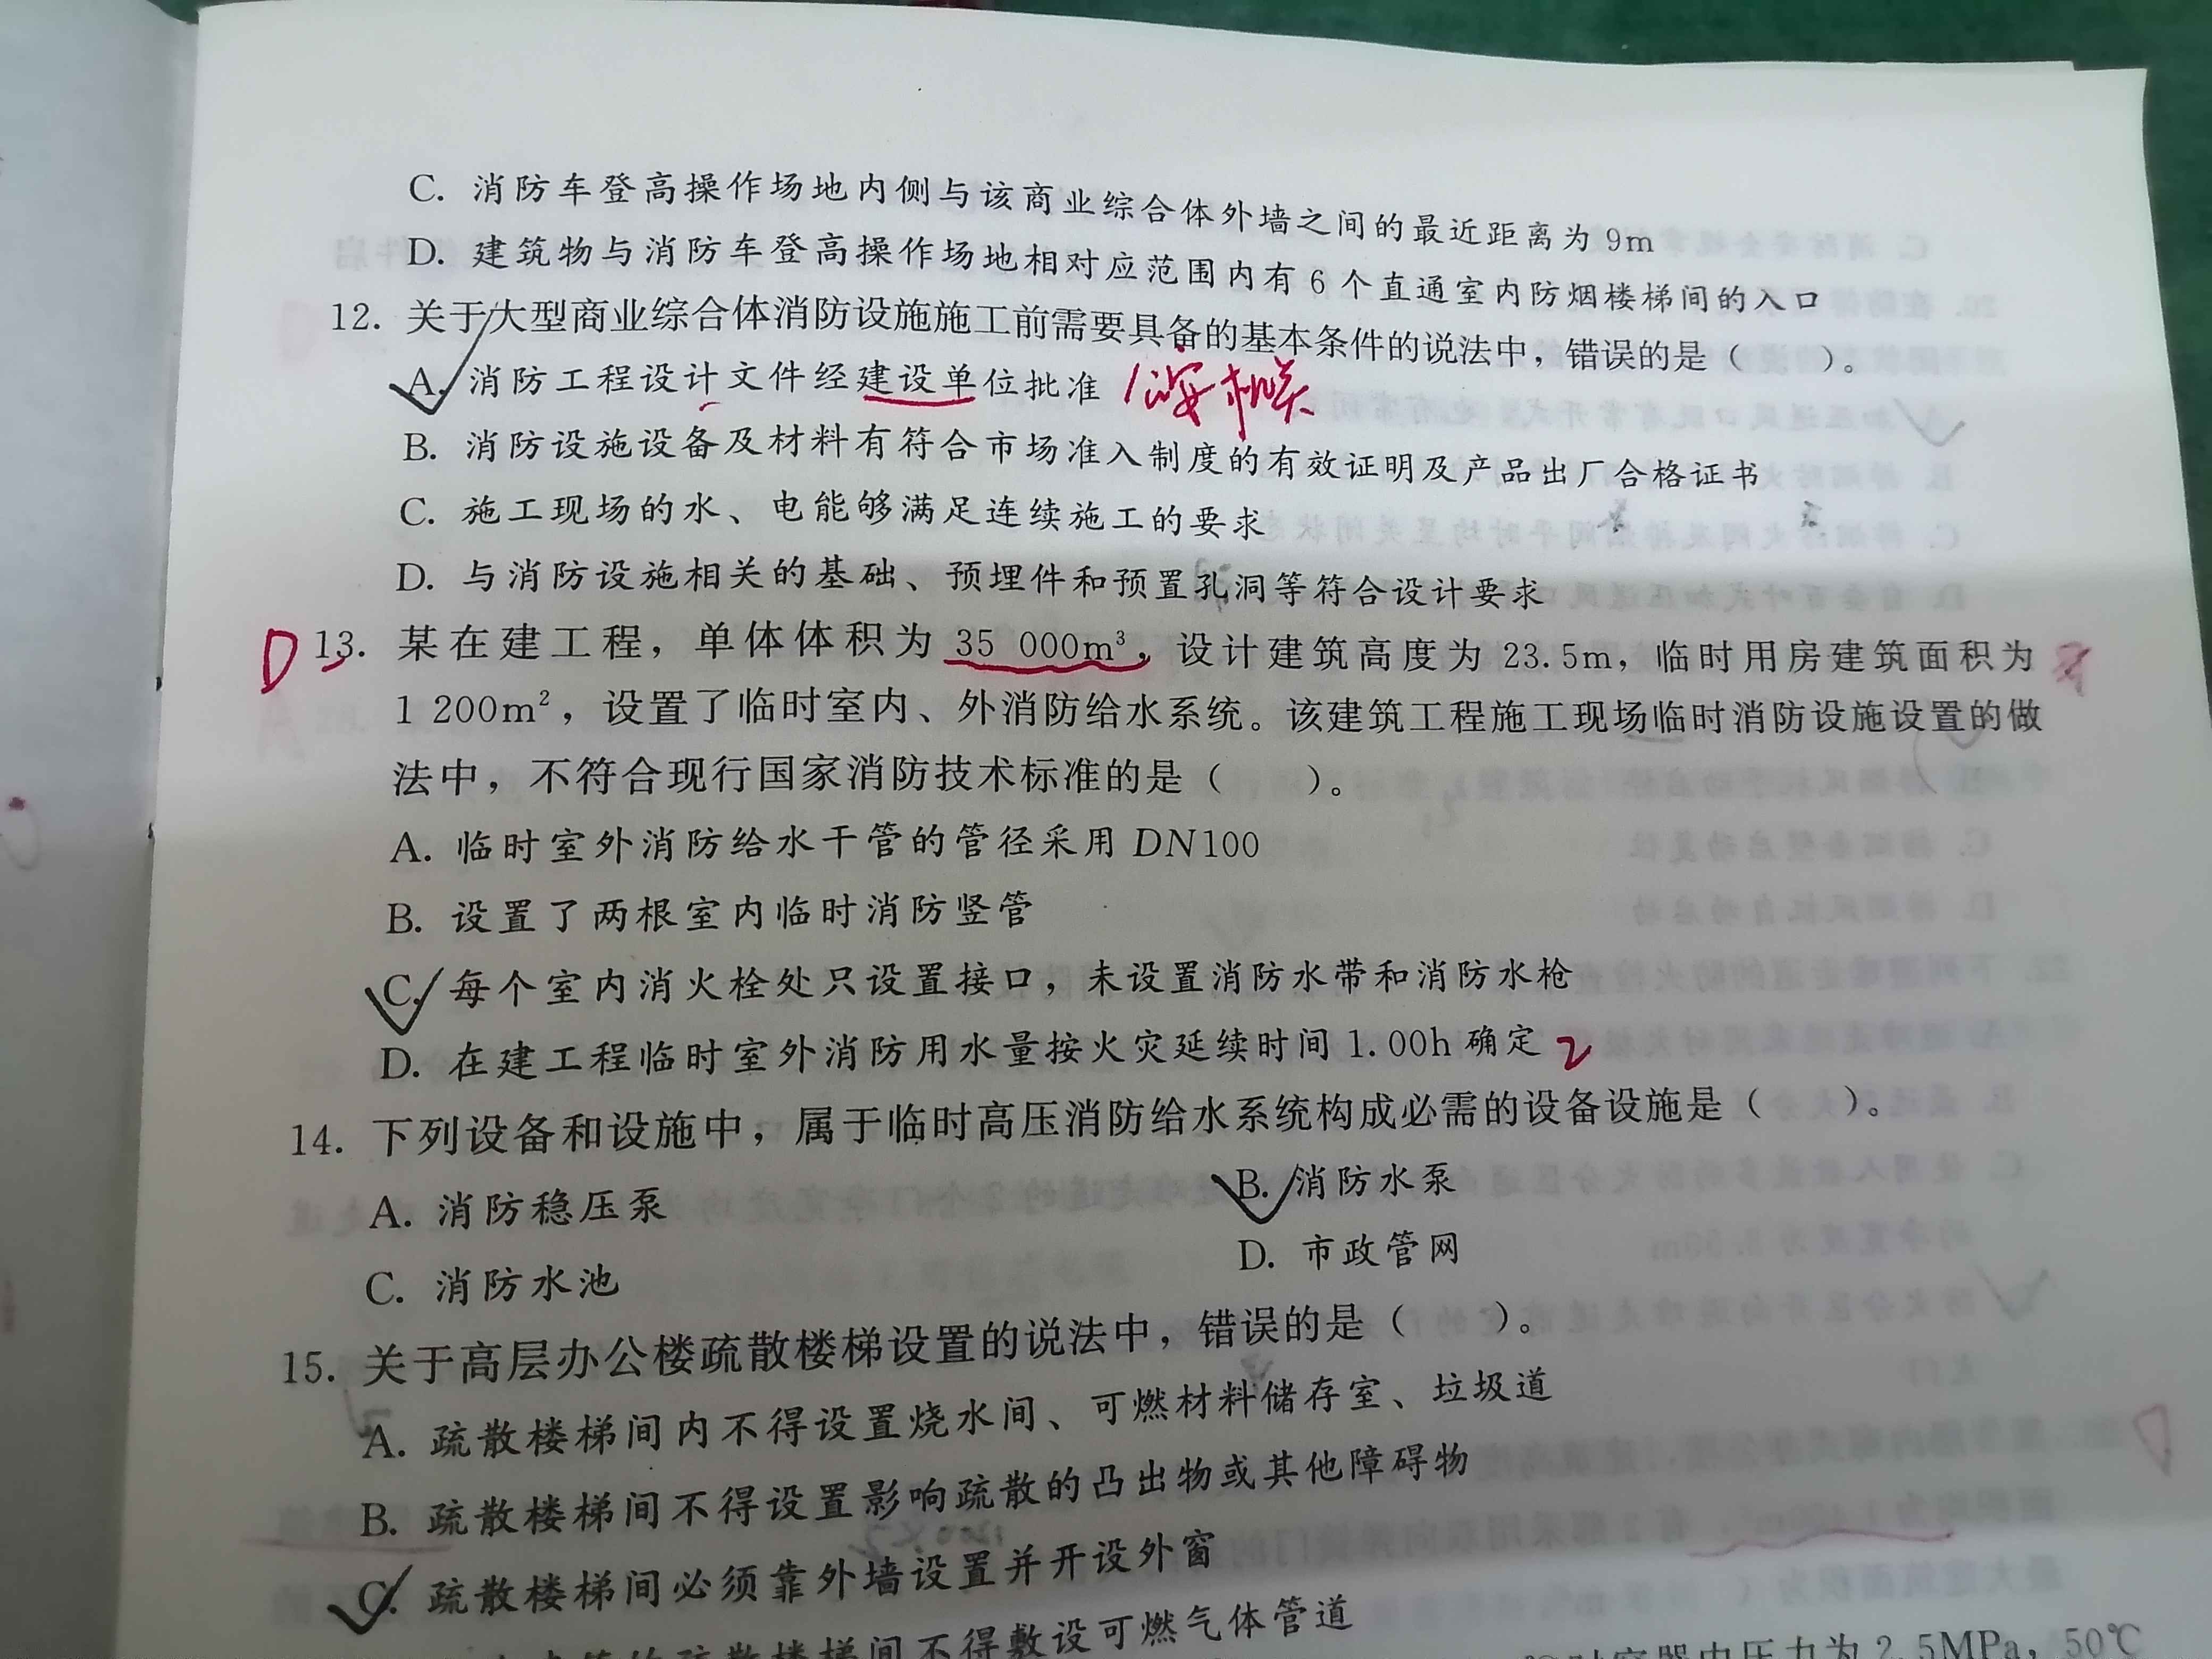 C. 消防车登高操作场地内侧与该商业综合体外墙之间的最近距离为9m
D. 建筑物与消防车登高操作场地相对应范围内有6个直通室内防烟楼梯间的入口
12. 关于大型商业综合体消防设施施工前需要具备的基本条件的说法中，错误的是（　　）。
A. 消防工程设计文件经建设单位批准 公安机关
B. 消防设施设备及材料有符合市场准入制度的有效证明及产品出厂合格证书
C. 施工现场的水、电能够满足连续施工的要求
D. 与消防设施相关的基础、预埋件和预置孔洞等符合设计要求
D 13. 某在建工程，单体体积为 35 000m³，设计建筑高度为 23.5m，临时用房建筑面积为
1 200m²，设置了临时室内、外消防给水系统。该建筑工程施工现场临时消防设施设置的做
法中，不符合现行国家消防技术标准的是（　　）。
A. 临时室外消防给水干管的管径采用 DN100
B. 设置了两根室内临时消防竖管
C. 每个室内消火栓处只设置接口，未设置消防水带和消防水枪
D. 在建工程临时室外消防用水量按火灾延续时间 1.00h 确定 2
14. 下列设备和设施中，属于临时高压消防给水系统构成必需的设备设施是（　　）。
A. 消防稳压泵 B. 消防水泵
C. 消防水池 D. 市政管网
15. 关于高层办公楼疏散楼梯设置的说法中，错误的是（　　）。
A. 疏散楼梯间内不得设置烧水间、可燃材料储存室、垃圾道
B. 疏散楼梯间不得设置影响疏散的凸出物或其他障碍物
C. 疏散楼梯间必须靠外墙设置并开设外窗
疏散楼梯间不得敷设可燃气体管道
时容器内压力为 2.5MPa，50℃